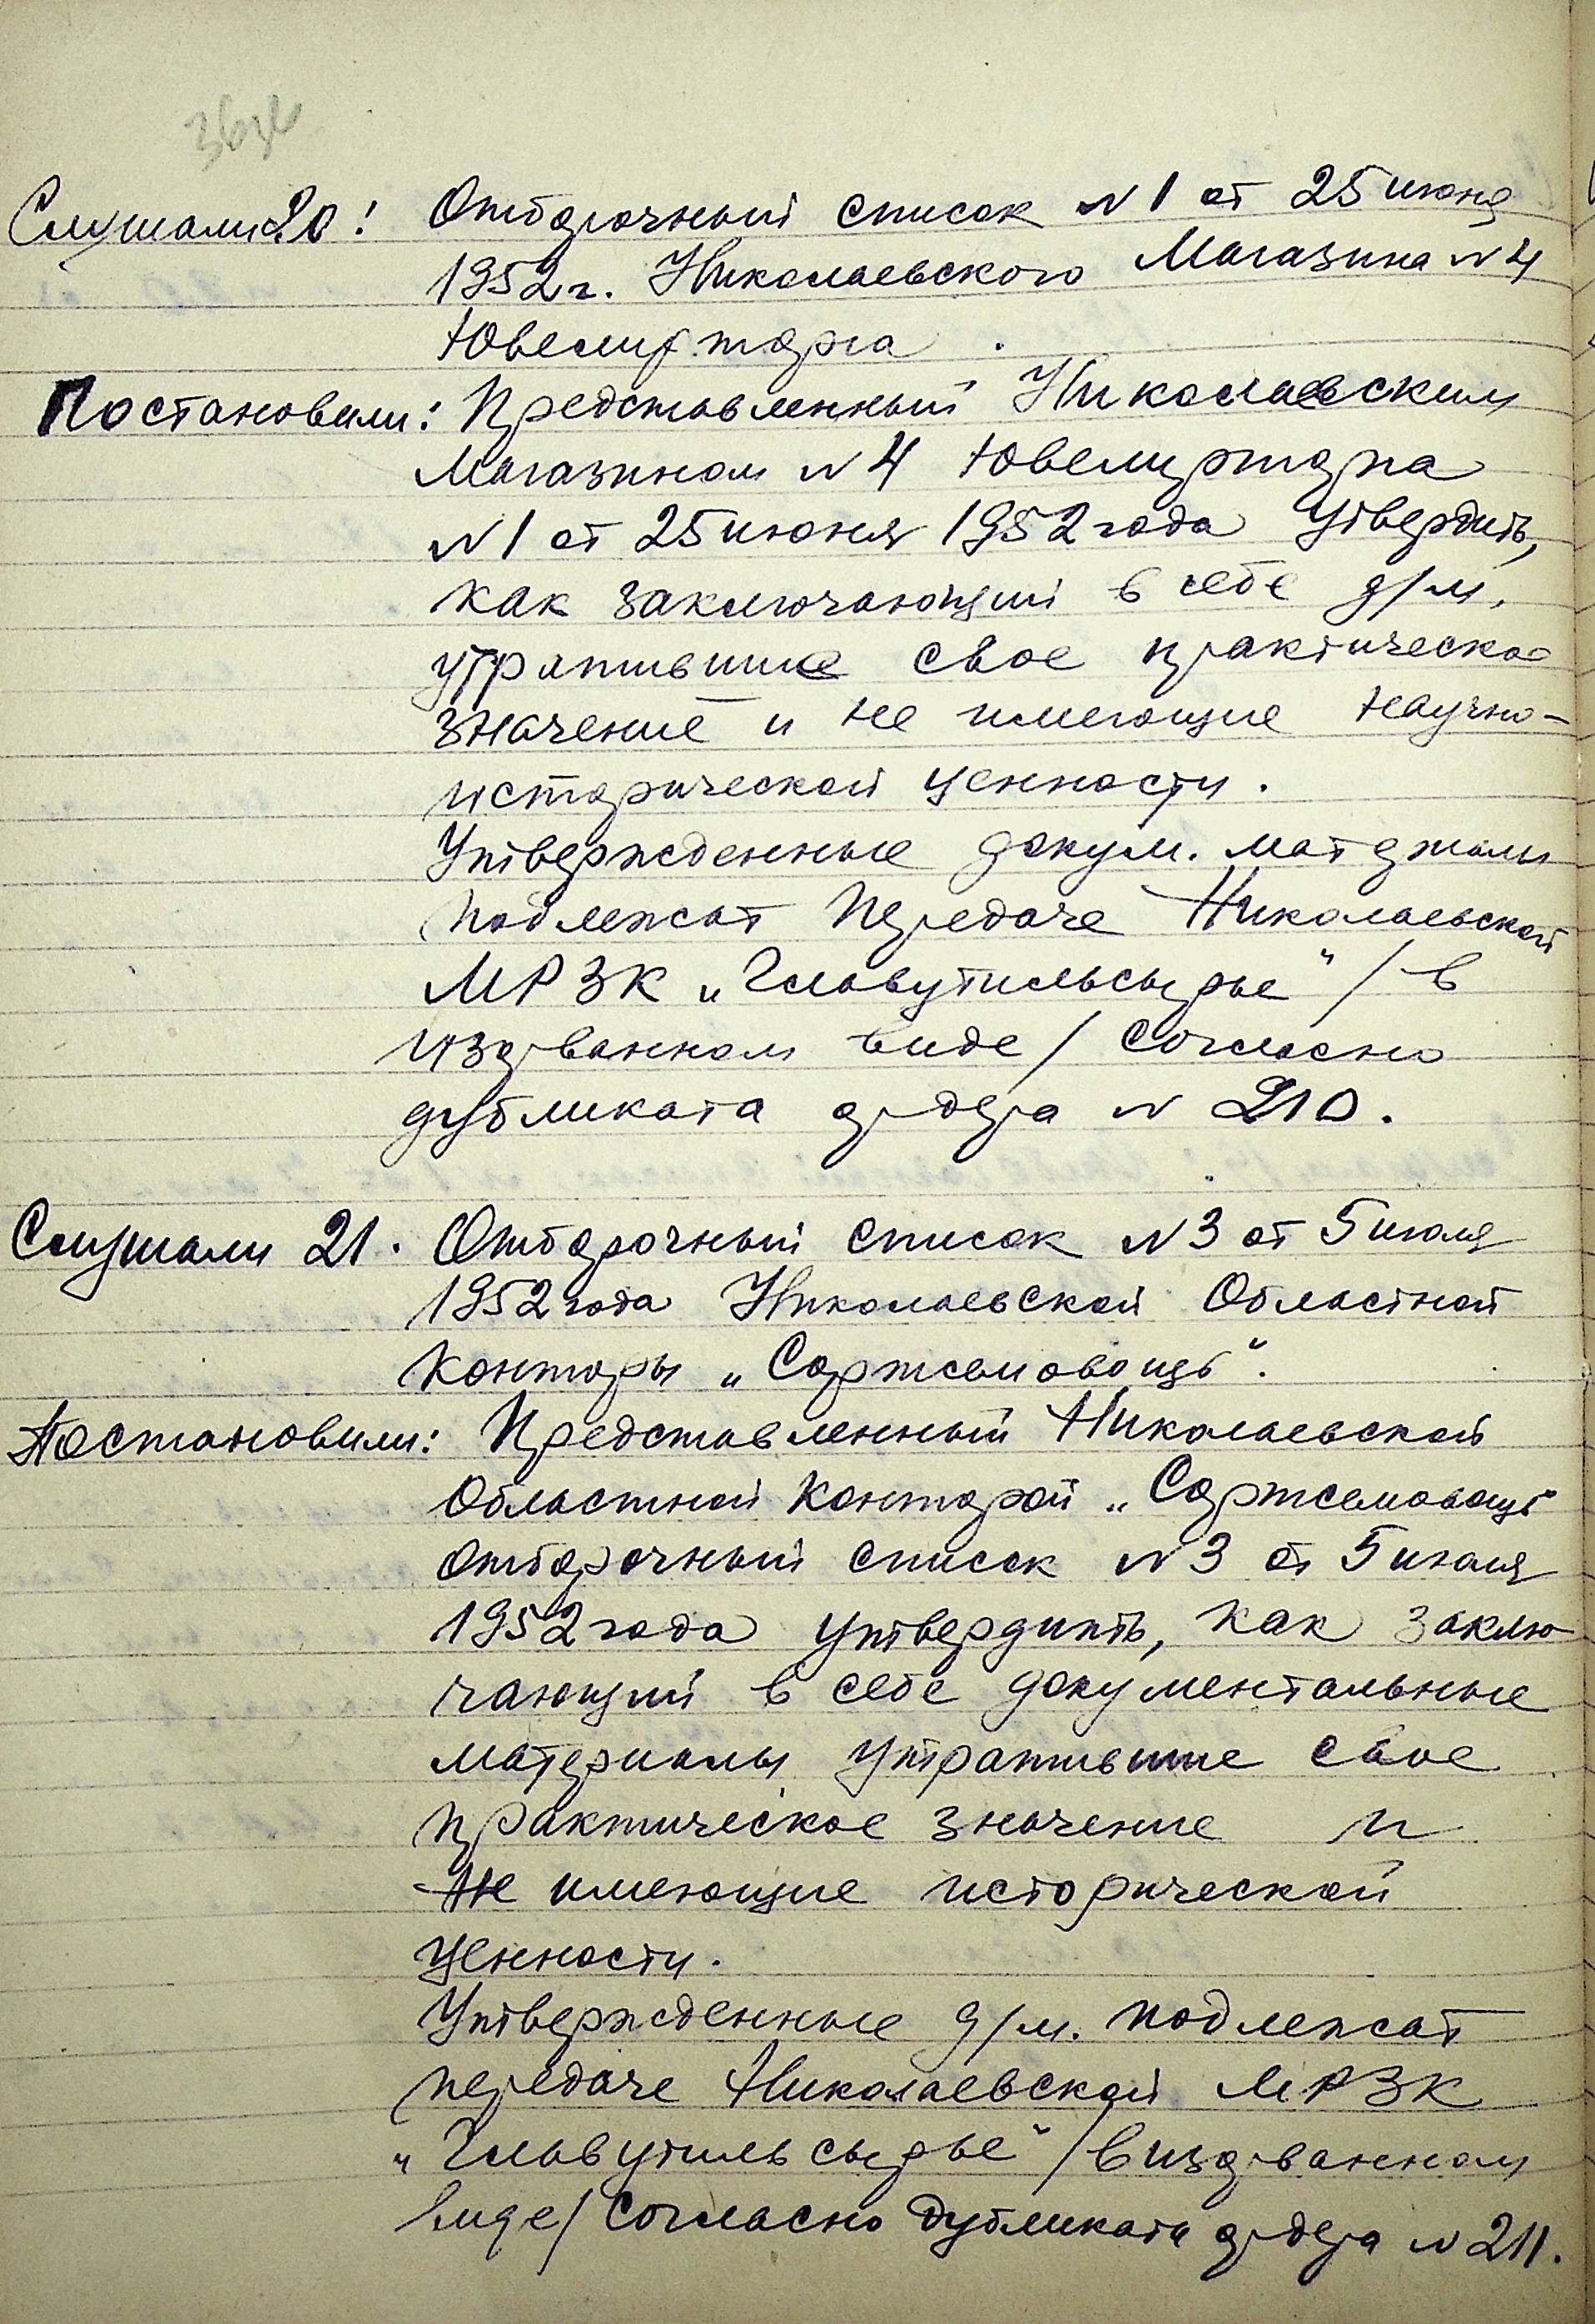 36об
Слушали 20: Отборочный список N 1 от 25 июня
1952 г. Николаевского Магазина N 4
Ювелирторга.
Постановили: Представленный Николаевским
Магазином N 4 Ювелирторга
N 1 от 25 июня 1952 года утвердить,
как заключающий в себе д/м,
утратившие свое практическое
значение и не имеющие научно-
исторической ценности.
Утвержденные докум. материалы
подлежат передаче Николаевской
МРЗК „Главутильсырье" / в
изорванном виде / согласно
дубликата ордера N 210.
Слушали 21. Отборочный список N 3 от 5 июля
1952 года Николаевской Областной
конторы „Сортсемовощ".
Постановили: Представленный Николаевской
Областной конторой „Сортсемовощ"
отборочный список N 3 от 5 июля
1952 года утвердить, как заклю
чающий в себе документальные
материалы утратившие свое
практическое значение и
не имеющие исторической
ценности.
Утвержденные д/м. подлежат
передаче Николаевской МРЗК
„Главутильсырье" / в изорванном
виде / согласно дубликата ордера N 211.